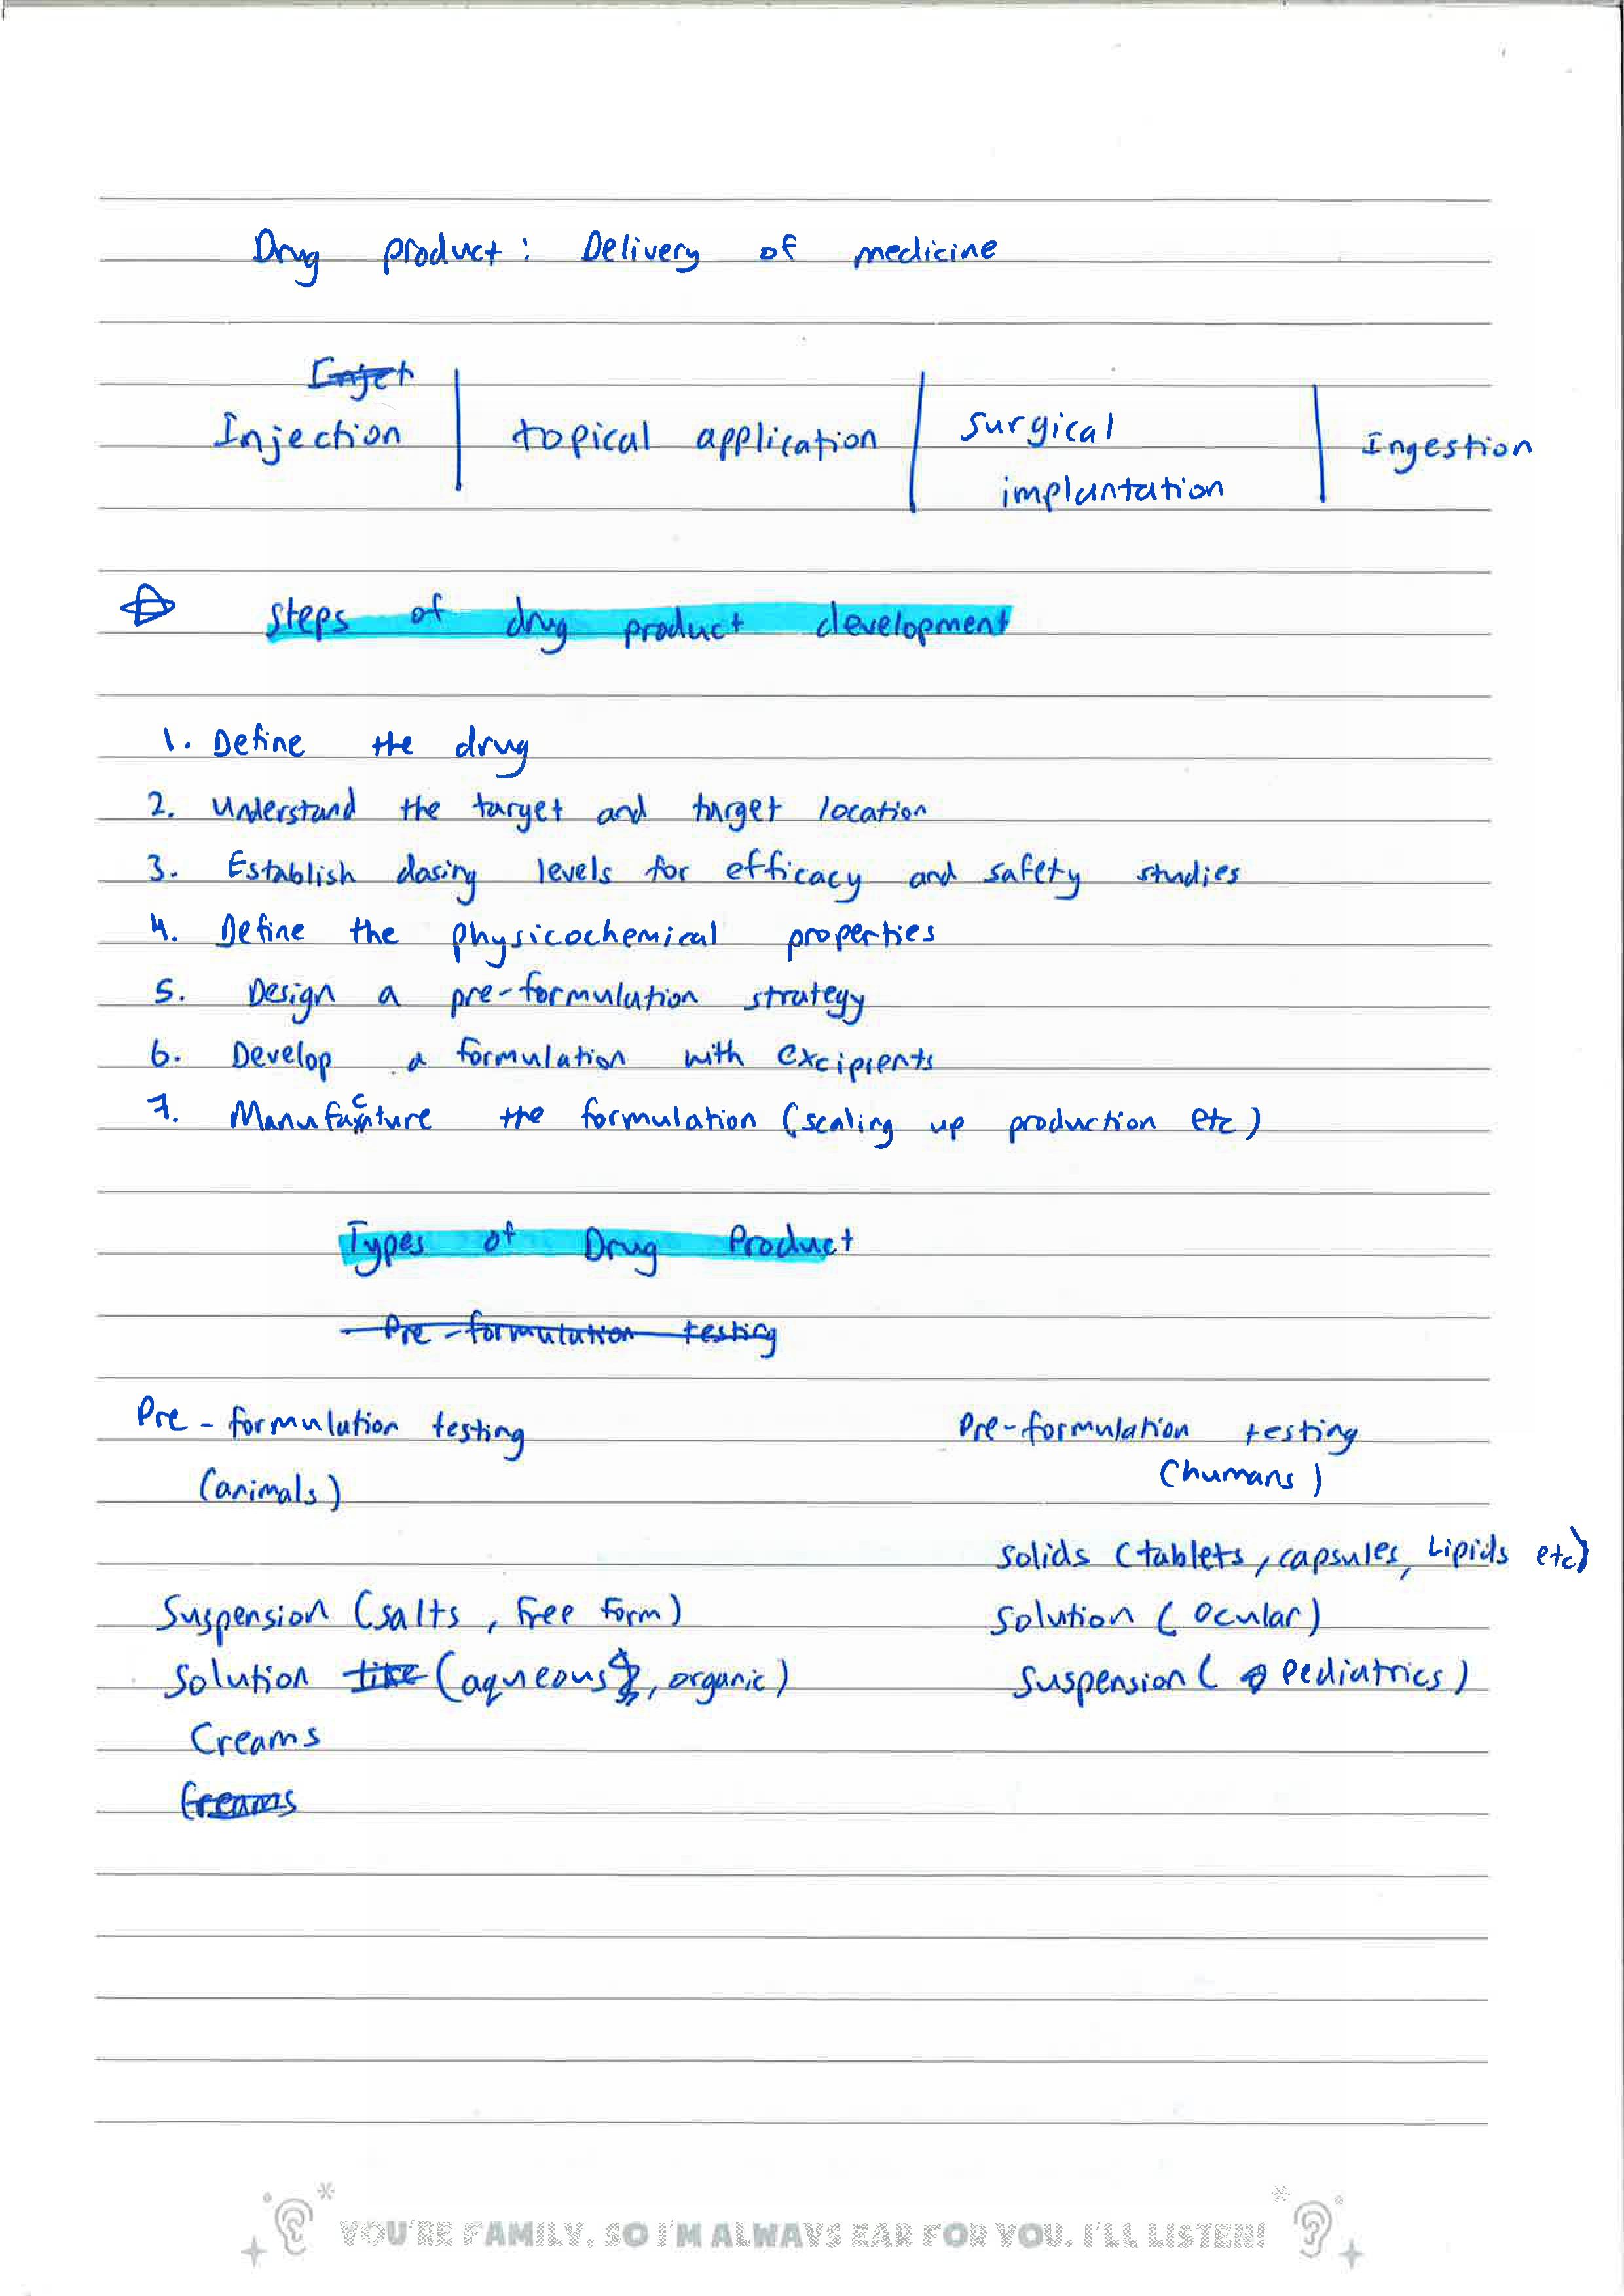 Drug product: Delivery of medicine
Injet
Injection | topical application | surgical implantation | Ingestion
Steps of drug product development
1. Define the drug
2. Understand the target and target location
3. Establish dosing levels for efficacy and safety studies
4. Define the physicochemical properties
5. Design a pre-formulation strategy
6. Develop a formulation with excipients
7. Manufacture the formulation (scaling up production etc)
Types of Drug Product
Pre-formulation testing
Pre-formulation testing (animals)
Suspension (salts, free form)
Solution like (aqueous, organic)
Creams
Creams
Pre-formulation testing (humans)
Solids (tablets, capsules, Lipids etc)
Solution (ocular)
Suspension (Pediatrics)
YOU'RE FAMILY. SO I'M ALWAYS EAR FOR YOU. I'LL LISTEN!